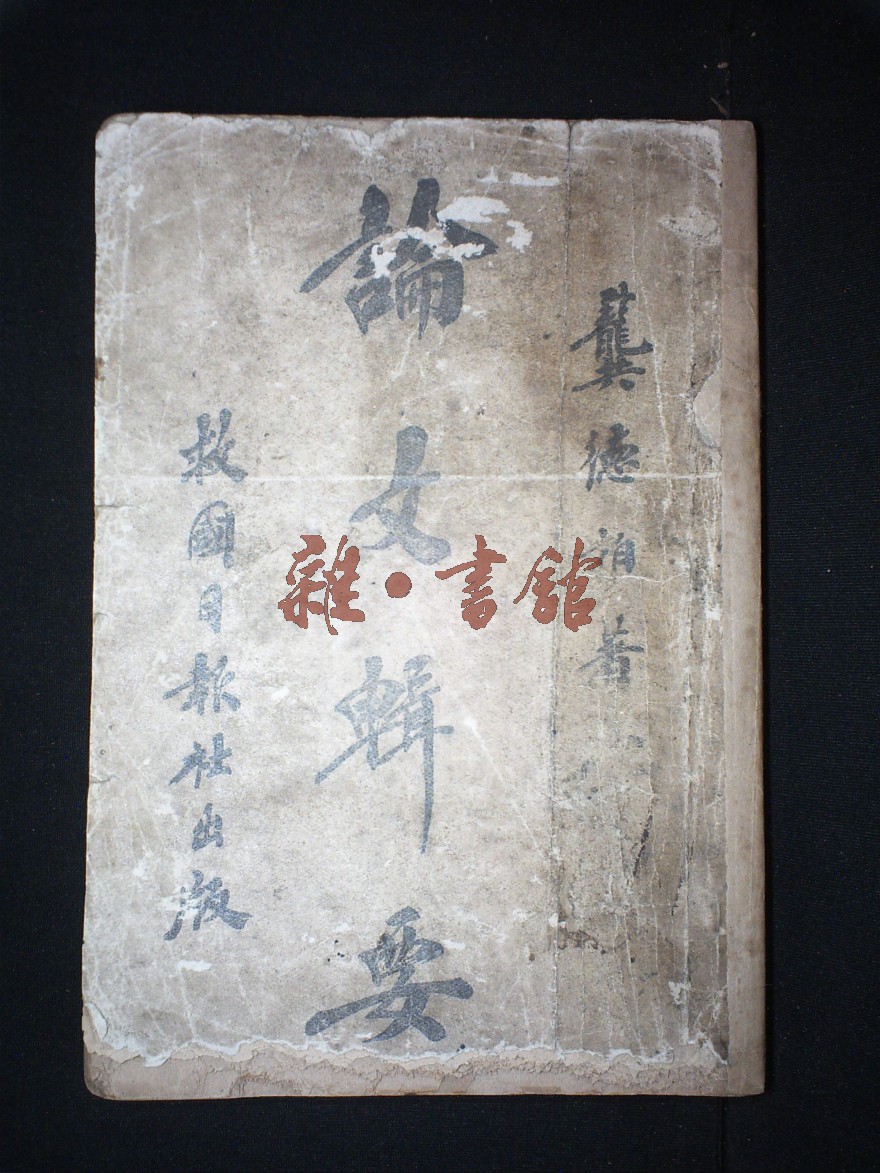 龔德柏著
論文輯要
救國日報社出版
雜·書館